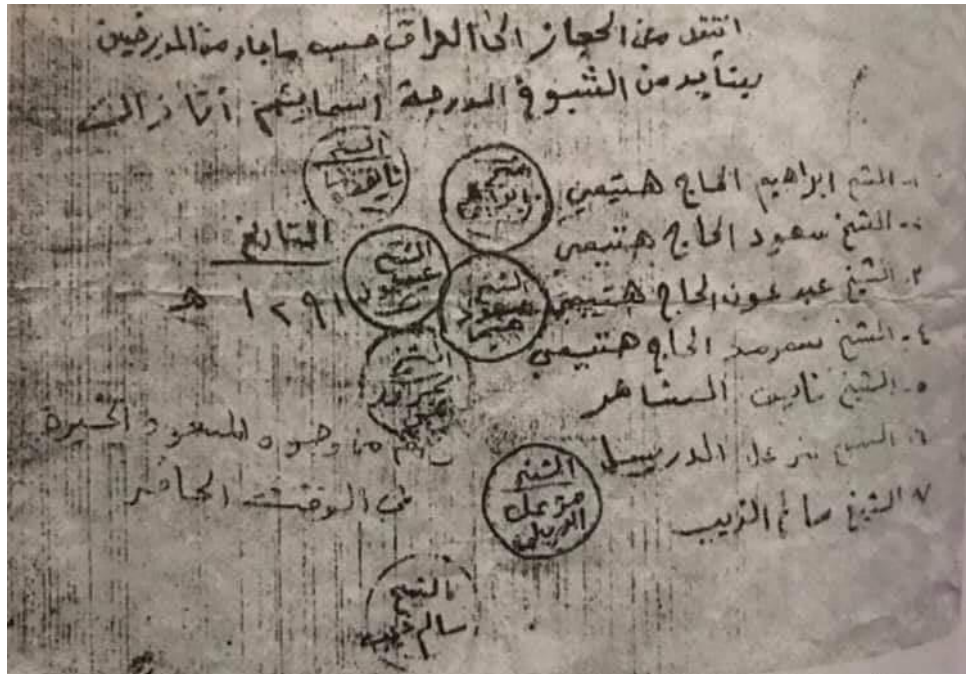 انتقل من الحجاز الى العراق حسب ما جاء من المورخين
بتأيد من الشيوخ المدرجة اسمايهم
١- الشيخ ابراهيم الحاج هتيمي
٢- الشيخ سعود الحاج هتيمي
٣- الشيخ عبد عون الحاج هتيمي
٤- الشيخ سرمد الحاج هتيمي
٥- الشيخ نايف المشاهر
٦- الشيخ مزعل الدريبل
٧- الشيخ سالم الذيب
التاريخ
١٢٩١ هـ
من وجوه المسعود الخيرة
في الوقت الحاضر
الشيخ
نايف
الشيخ
الشيخ
الشيخ
سعود
الشيخ
الشيخ
مزعل
الدريبل
الشيخ
سالم